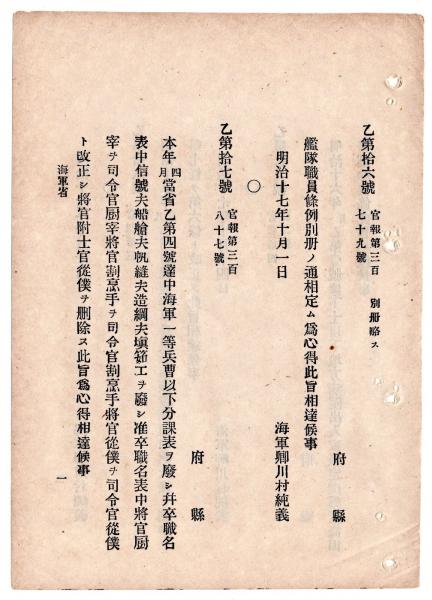 乙第拾六號 官報第三百七十九號 別册略ス
府縣
艦隊職員條例別册ノ通相定ム爲心得此旨相達候事
明治十七年十月一日 海軍卿川村純義
○
乙第拾七號 官報第三百八十七號
府縣
本年四月當省乙第四號達中海軍一等兵曹以下分課表ヲ廢シ幷卒職名
表中信號夫船艙夫帆縫夫造綱夫塡筎工ヲ廢シ准卒職名表中將官厨
宰ヲ司令官厨宰將官割烹手ヲ司令官割烹手將官從僕ヲ司令官從僕
ト改正シ將官附士官從僕ヲ刪除ス此旨爲心得相達候事
海軍省
一